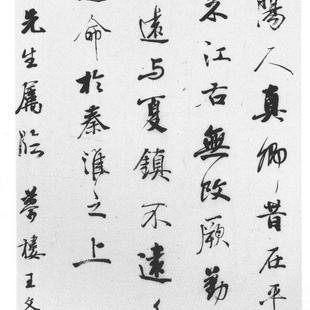 人真卿昔在平
江右無改厥勤
遠与夏鎮不遠
命於秦淮之上
先生屬臨 夢樓王文